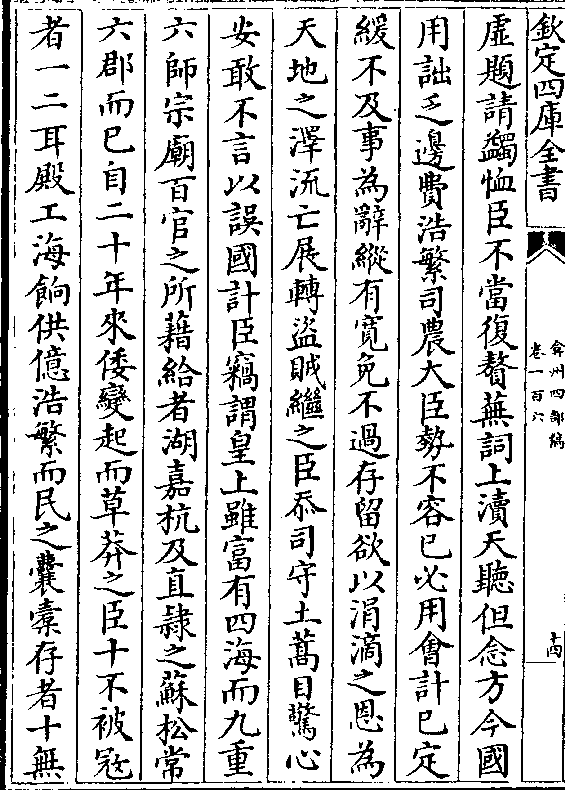 欽定四庫全書
弇州四部稿
卷一百六
十四
虛題請蠲恤臣不當復贅蕪詞上瀆天聽但念方今國
用詘乏邊費浩繁司農大臣勢不容已必用會計已定
緩不及事為辭縱有寛免不過存留欲以涓滴之恩為
天地之澤流亡展轉盜賊繼之臣忝司守土蒿目驚心
安敢不言以誤國計臣竊謂皇上雖富有四海而九重
六師宗廟百官之所藉給者湖嘉杭及直隷之蘇松常
六郡而已自二十年來倭變起而草莽之臣十不被宼
者一二耳殿工海餉供億浩繁而民之囊橐存者十無